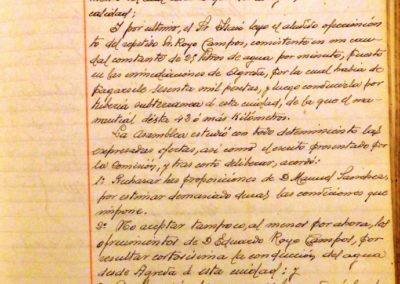 calidad;
Y por último, el Sr. leyo el aludido ofrecimien
to del repetido Sr. Royo Campos, consistente en un cau
dal constante de 95 litros de agua por minuto, puesto
en las inmediaciones de Agreda, por la cual había de
pagarsele sesenta mil pesetas, y luego conducirla por
tubería subterranea á esta ciudad, de la que el ma
nantial dista 43 ó más kilómetros.
La Asamblea estudió con todo detenimiento las
expresadas ofertas, así como el escrito presentado por
la Comisión, y tras corto deliberar, acordó:
1º Rechazar las proposiciones de D. Manuel
por estimar demasiado duras las condiciones que
impone.
2º No aceptar tampoco, al menos por ahora, los
ofrecimientos de D. Eduardo Royo Campos, por
resultar costosisima la conducción del agua
desde Agreda á esta ciudad; y